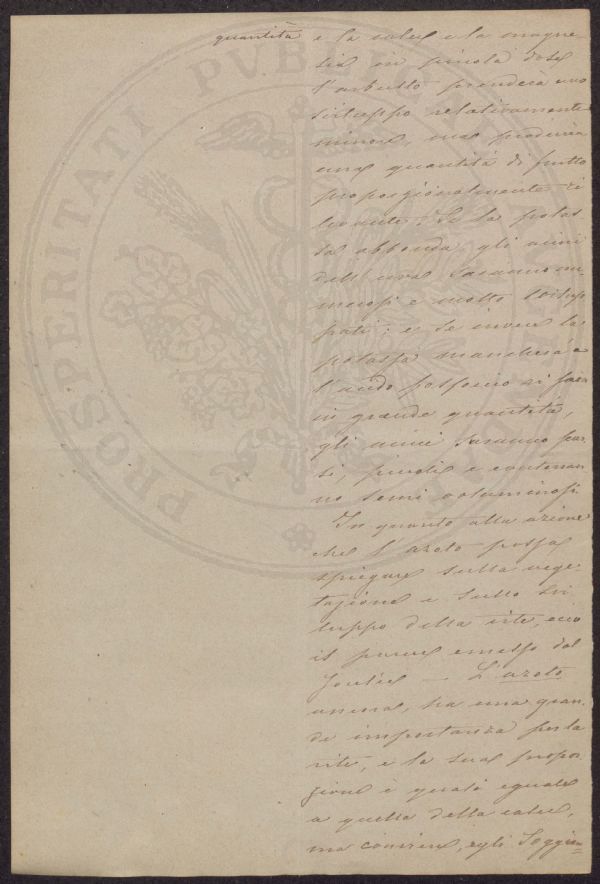 quantità e la calce e la magne-
sia in piccola dose
l'arbusto prenderà uno
sviluppo relativamente
minore, ma produrrà
una quantità di frutto
proporzionalmente ri
levante. Se la potas
sa abbonda, gli acini
dell'uva saranno nu
merosi e molto svilup
pati; e se invece la
potassa mancherà e
l'acido fosforico vi sarà
in grande quantità,
gli acini saranno scar
si, piccoli e conterran
no semi voluminosi
In quanto alla azione
che l'azoto possa
spiegare sulla vege-
tazione e sullo svi
luppo della vite, ecco
il parere emesso dal
Joulie — L'azoto
ancora, ha una gran
de importanza per la
vite, e la sua propor
zione è quasi eguale
a quella della calce,
ma conviene, egli soggiun=
PROSPERITATI PVBLICAE